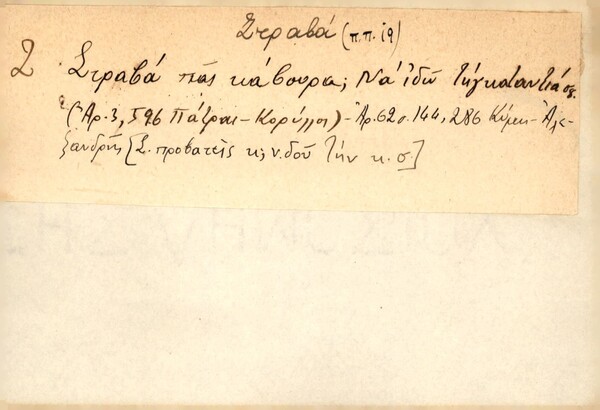 Στραβά (π.π. 19)
2 Στραβά πᾶς κάβουρα; Νά ἰδῶ τήν καταντιά σ.
(Ἀρ. 3, 596 Πάτραι - Κορύλλος) - Ἀρ. 62 σ. 144, 286 Κύμη - Ἀλε-
ξανδρῆς [Σ. προβατεῖς κ; ν. δοῦ τήν κ. σ]